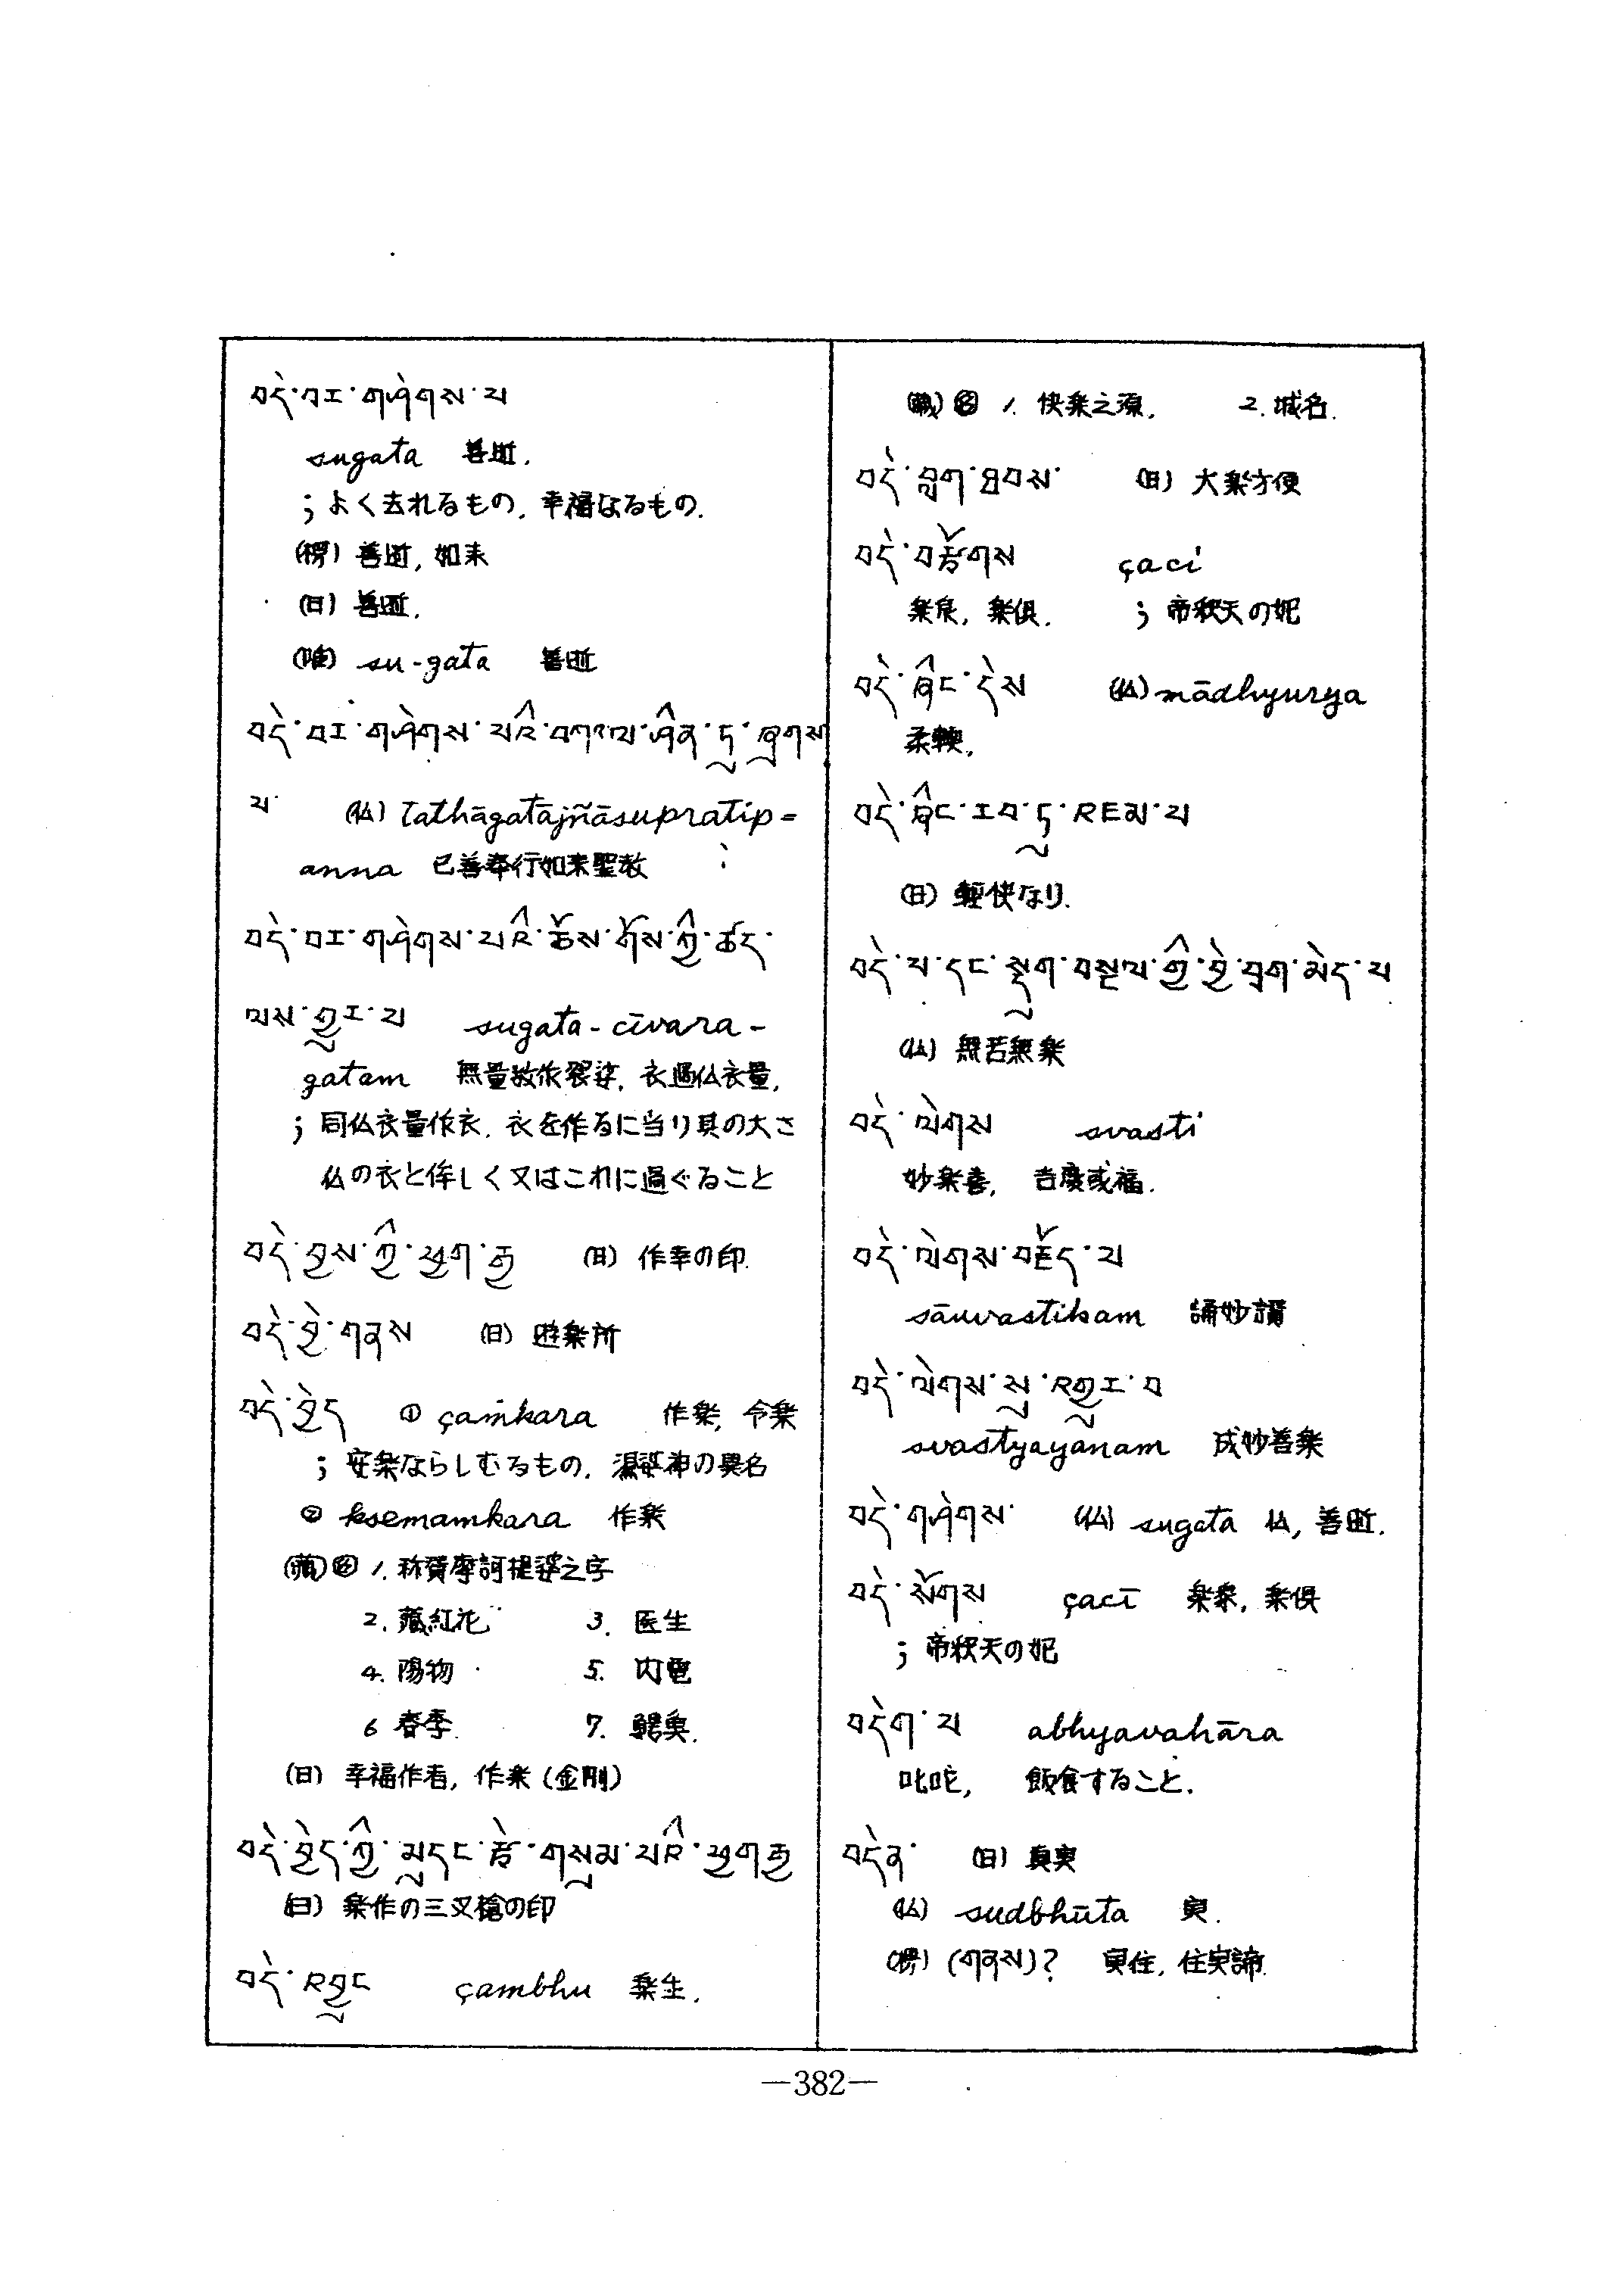 བདེ་བར་གཤེགས་པ
sugata 善逝.
; よく去れるもの, 幸福なるもの.
(楞) 善逝, 如来
(日) 善逝.
(唯) su-gata 善逝
བདེ་བར་གཤེགས་པའི་བཀའ་ལ་ཤིན་ཏུ་ཞུགས
པ་ (仏) Tathāgatājñāsupratip=
anna 已善奉行如来聖教
བདེ་བར་གཤེགས་པའི་ཆོས་གོས་ཀྱི་ཚད་
ལས་གྱུར་པ sugata-cīvara-
gatam 無量数依袈裟, 衣過仏衣量,
; 同仏衣量作衣. 衣を作るに当り其の大さ
仏の衣と侔しく又はこれに過ぐること
བདེ་བྱས་ཀྱི་ཕྱག་རྒྱ (日) 作幸の印.
བདེ་བྱེ་གནས (日) 遊楽所
བདེ་བྱེད ① çaṁkara 作楽, 令楽
; 安楽ならしむるもの. 湿婆神の異名
② ksemamkara 作楽
(蔵)㊔ 1. 称賛摩訶提婆之字
2. 蔵紅花 3. 医生
4. 陽物 5. 内電
6 春季. 7. 鰐魚.
(日) 幸福作者, 作楽 (金剛)
བདེ་བྱེད་ཀྱི་མདུང་རྩེ་གསུམ་པའི་ཕྱག་རྒྱ
(日) 楽作の三叉槍の印
བདེ་འབྱུང çambhu 楽生.
(蔵) 1. 快楽之源. 2. 城名.
བདེ་བླག་ཐབས་ (日) 大楽方便
བདེ་བརྩོགས çaci
楽良, 楽倶. ; 帝釈天の妃
བདེ་ཞིང་དེས (仏) mādhyurya
柔軟.
བདེ་ཞིང་རབ་ཏུ་འཇམ་པ
(日) 軽快なり.
བདེ་བ་དང་སྡུག་བསྔལ་གྱི་བྱེ་བྲག་མེད་པ
(仏) 無苦無楽
བདེ་ལེགས svasti
妙楽喜, 吉慶或福.
བདེ་ལེགས་བརྗོད་པ
sāuvastikam 誦妙讃
བདེ་ལེགས་སུ་འགྱུར་བ
svastyayanam 成妙善楽
བདེ་གཤེགས་ (仏) sugata 仏, 善逝.
བདེ་སོགས çacī 楽聚, 楽倶
; 帝釈天の妃
བདེག་པ abhyavahāra
叱咤, 飯食すること.
བདེན་ (日) 真実
(仏) sudbhūta 実.
(楞) (གནས)? 実住, 住実諦.
—382—